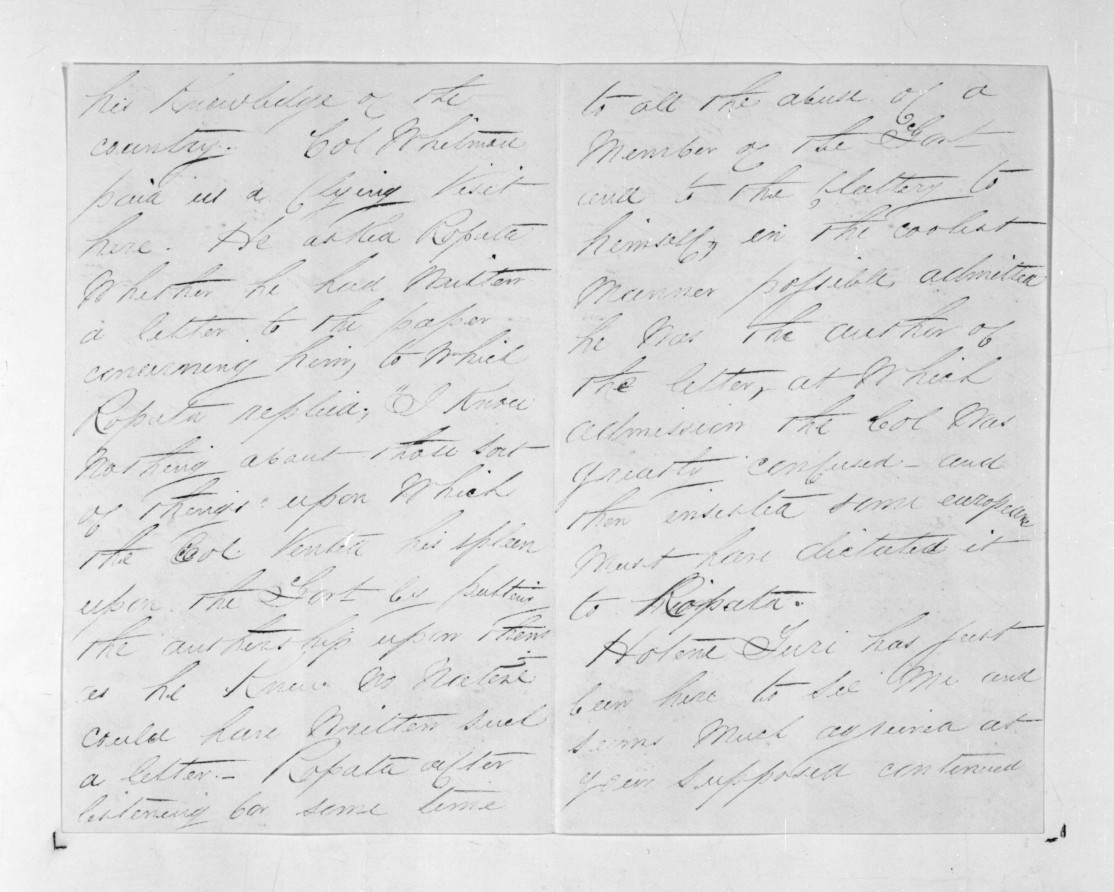 his Knowledge of the
country. Col Whitmore
paid us a flying visit
here. He asked Ropata
Whether he had Written
a letter to the paper
concerning him, to Which
Ropata replied, "I Know
nothing about those sort
of things" upon Which
the Col Vented his spleen
upon the Govt by putting
the authorship upon them
as he Knew No Native
could have Written such
a letter. – Ropata after
listening for some time
to all the abuse of a
Member of the Govt
and to the flattery to
himself, in the coolest
Manner possible admitted
he Was the author of
the letter, at Which
admission the Col Was
greatly confused – and
then insisted some european
Must have dictated it
to Ropata.
Hotene Turi has just
been here to See Me and
seems Much agrieved at
your supposed continued